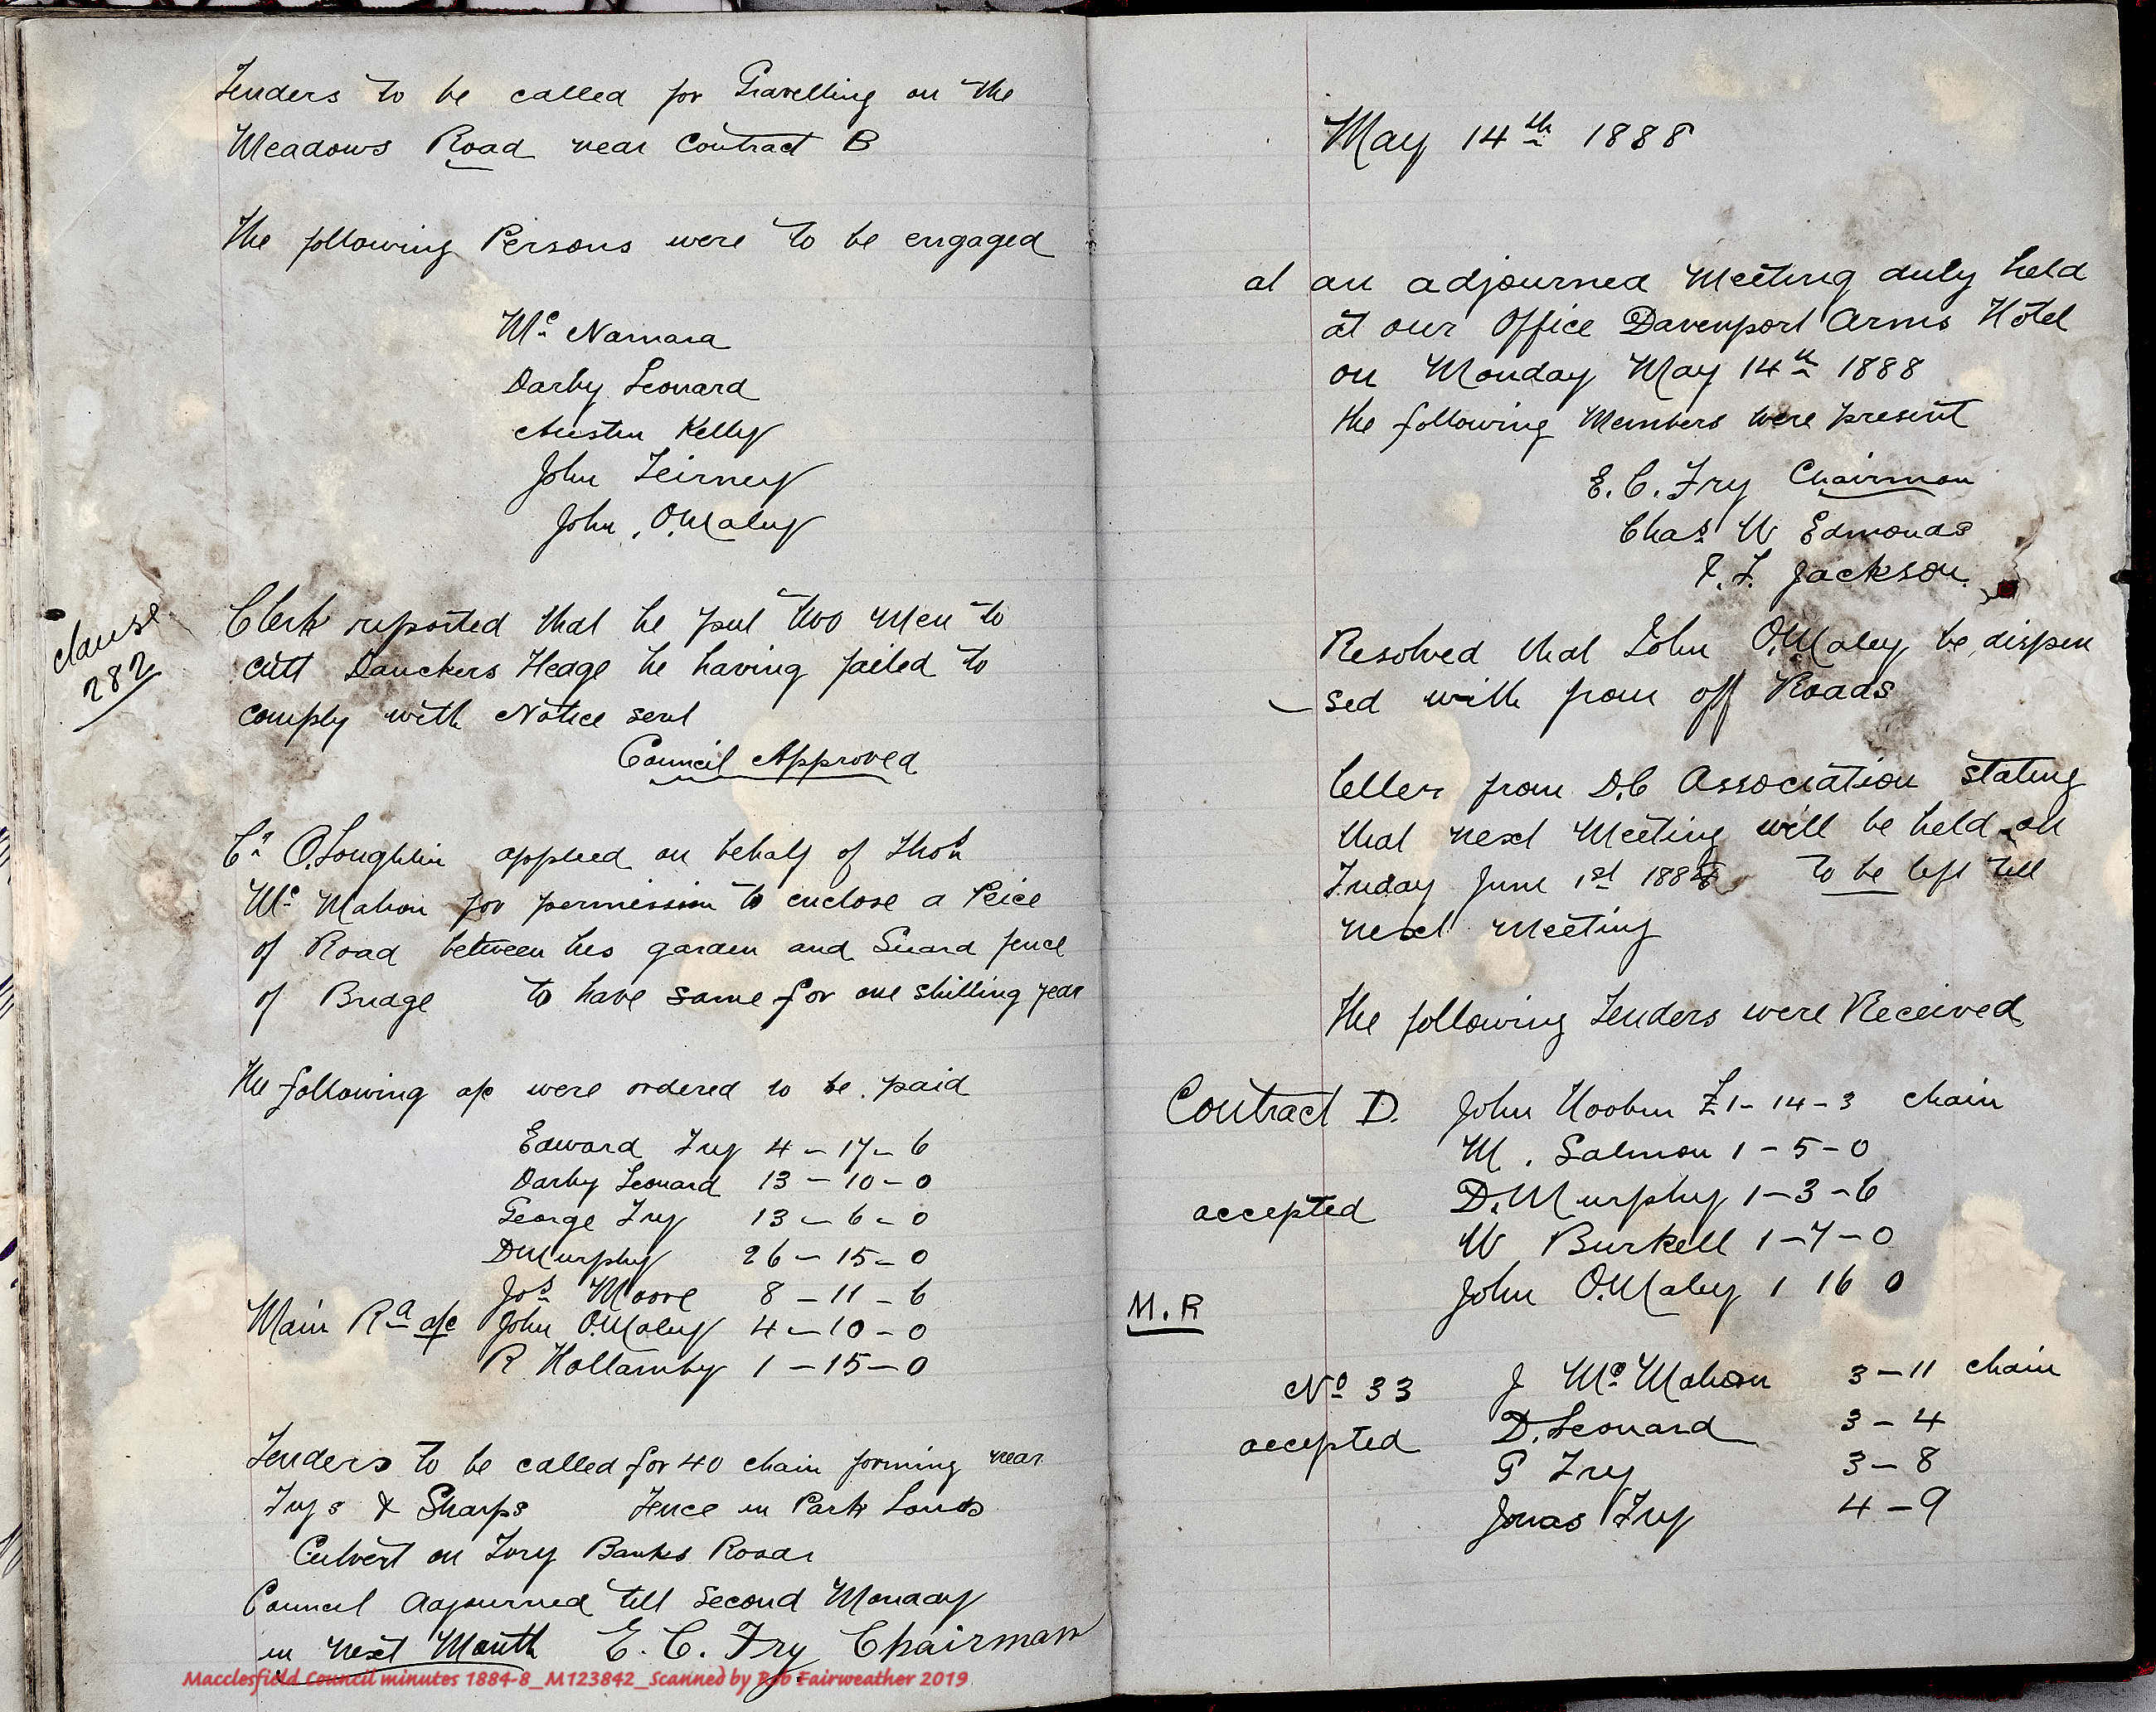 Tenders to be called for Gravelling on the
Meadows Road near Contract B
The following Persons were to be engaged
Mc Namara
Darby Leonard
Austin Kelly
John Teirney
John O.Maley
clause
282
Clerk reported that he put two men to
cutt Danckers Hedge he having failed to
comply with Notice sent
Council Approved
Cr O.Loughlin applied on behalf of Thos
Mc Mahon for permission to enclose a Peice
of Road between his garden and Guard fence
of Bridge to have same for one shilling year
The following a/c were ordered to be paid
Edward Fry 4 - 17 - 6
Darby Leonard 13 - 10 - 0
George Fry 13 - 6 - 0
D Murphy 26 - 15 - 0
Jos Moore 8 - 11 - 6
Main Rd a/c John O.Maley 4 - 10 - 0
R Hollamby 1 - 15 - 0
Tenders to be called for 40 chain forming near
Frys & Sharps Fence in Park Lands
Culvert on Banks Road
Council adjourned till second Monday
in next Month E. C. Fry Chairman
Macclesfield Council minutes 1884-8_M123842_Scanned by Rob Fairweather 2019
May 14th 1888
at an adjourned Meeting duly held
at our Office Davenport Arms Hotel
on Monday May 14th 1888
the following Members were present
E. C. Fry Chairman
Chas W Edmonds
F. Jackson
Resolved that John O.Maley be dispen
sed with from off Roads
letter from D.C Association stating
that next Meeting will be held on
Friday June 1st 1888 to be left till
next meeting
The following Tenders were Received
Contract D. John £1 - 14 - 3 chain
M. Salmon 1 - 5 - 0
accepted D. Murphy 1 - 3 - 6
W Burkell 1 - 7 - 0
John O.Maley 1 16 0
M.R
No 33 J Mc Mahon 3 - 11 chain
accepted D. Leonard 3 - 4
G Fry 3 - 8
Jonas Fry 4 - 9